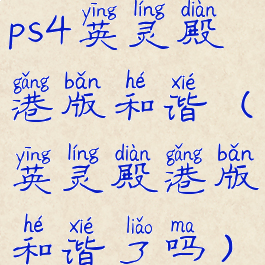 yīng líng diàn
ps4英灵殿
gǎng bǎn hé xié
港版和谐（
yīng líng diàn gǎng bǎn
英灵殿港版
hé xié liǎo ma
和谐了吗）